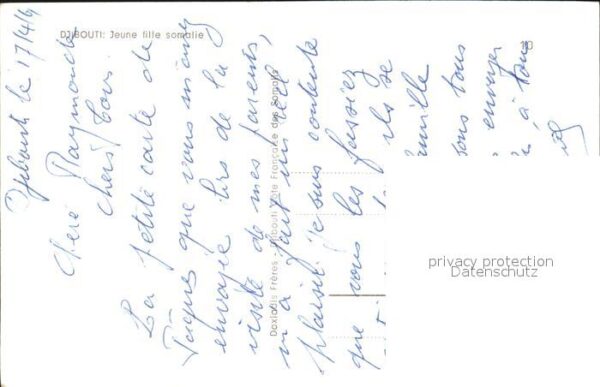 DJIBOUTI: Jeune fille somalie
10
Djibouti le 17/4/4
Chère Raymonde
chers tous
La petite carte de
Pâques que vous m'avez
envoyée lors de la
visite de mes parents,
m'a fait un réel
plaisir. Je suis contente
que vous les fassiez
ils se
famille
sous tous
envoyer
à tous
Doxiadis Frères - Djibouti (Côte Française des Somalis)
privacy protection
Datenschutz